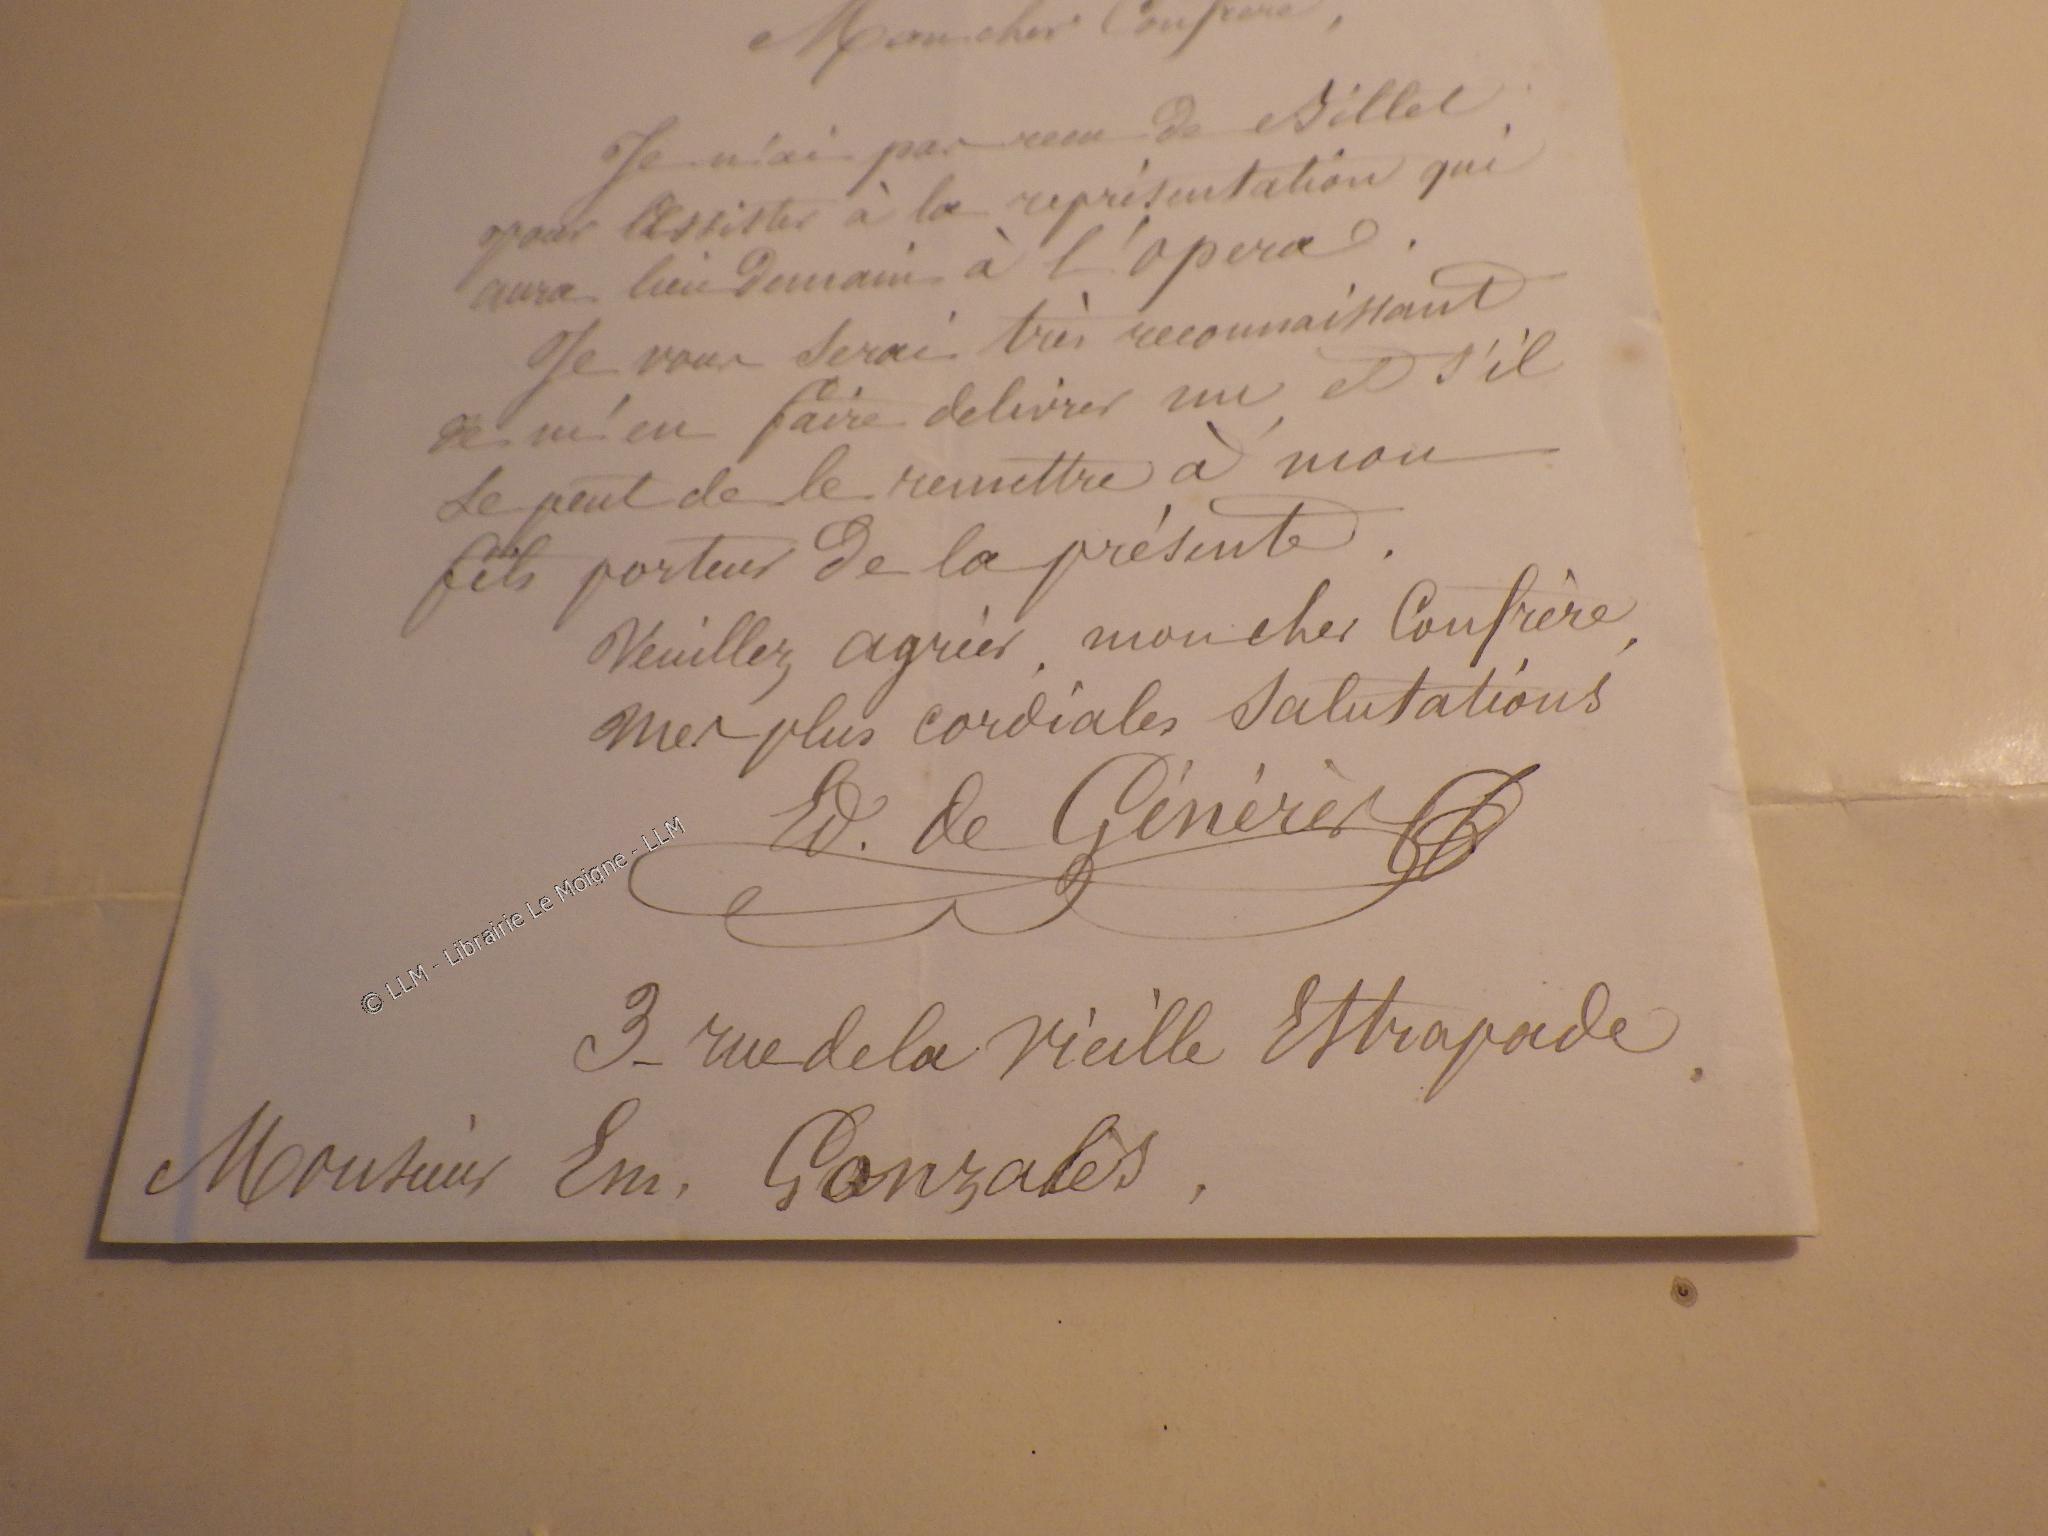 Mon cher Confrère,
Je n'ai pas reçu de Billet
pour assister à la représentation qui
aura lieu demain à l'opera.
Je vous serai très reconnaissant
de m'en faire delivrer un et s'il
se peut de le remettre à mon
fils porteur de la présente.
Veuillez agréer, mon cher Confrère,
mes plus cordiales salutations
Ed. de Génerès
© LLM - Librairie Le Moigne - LLM
3 rue de la Vieille Estrapade.
Monsieur Em. Gonzalès.